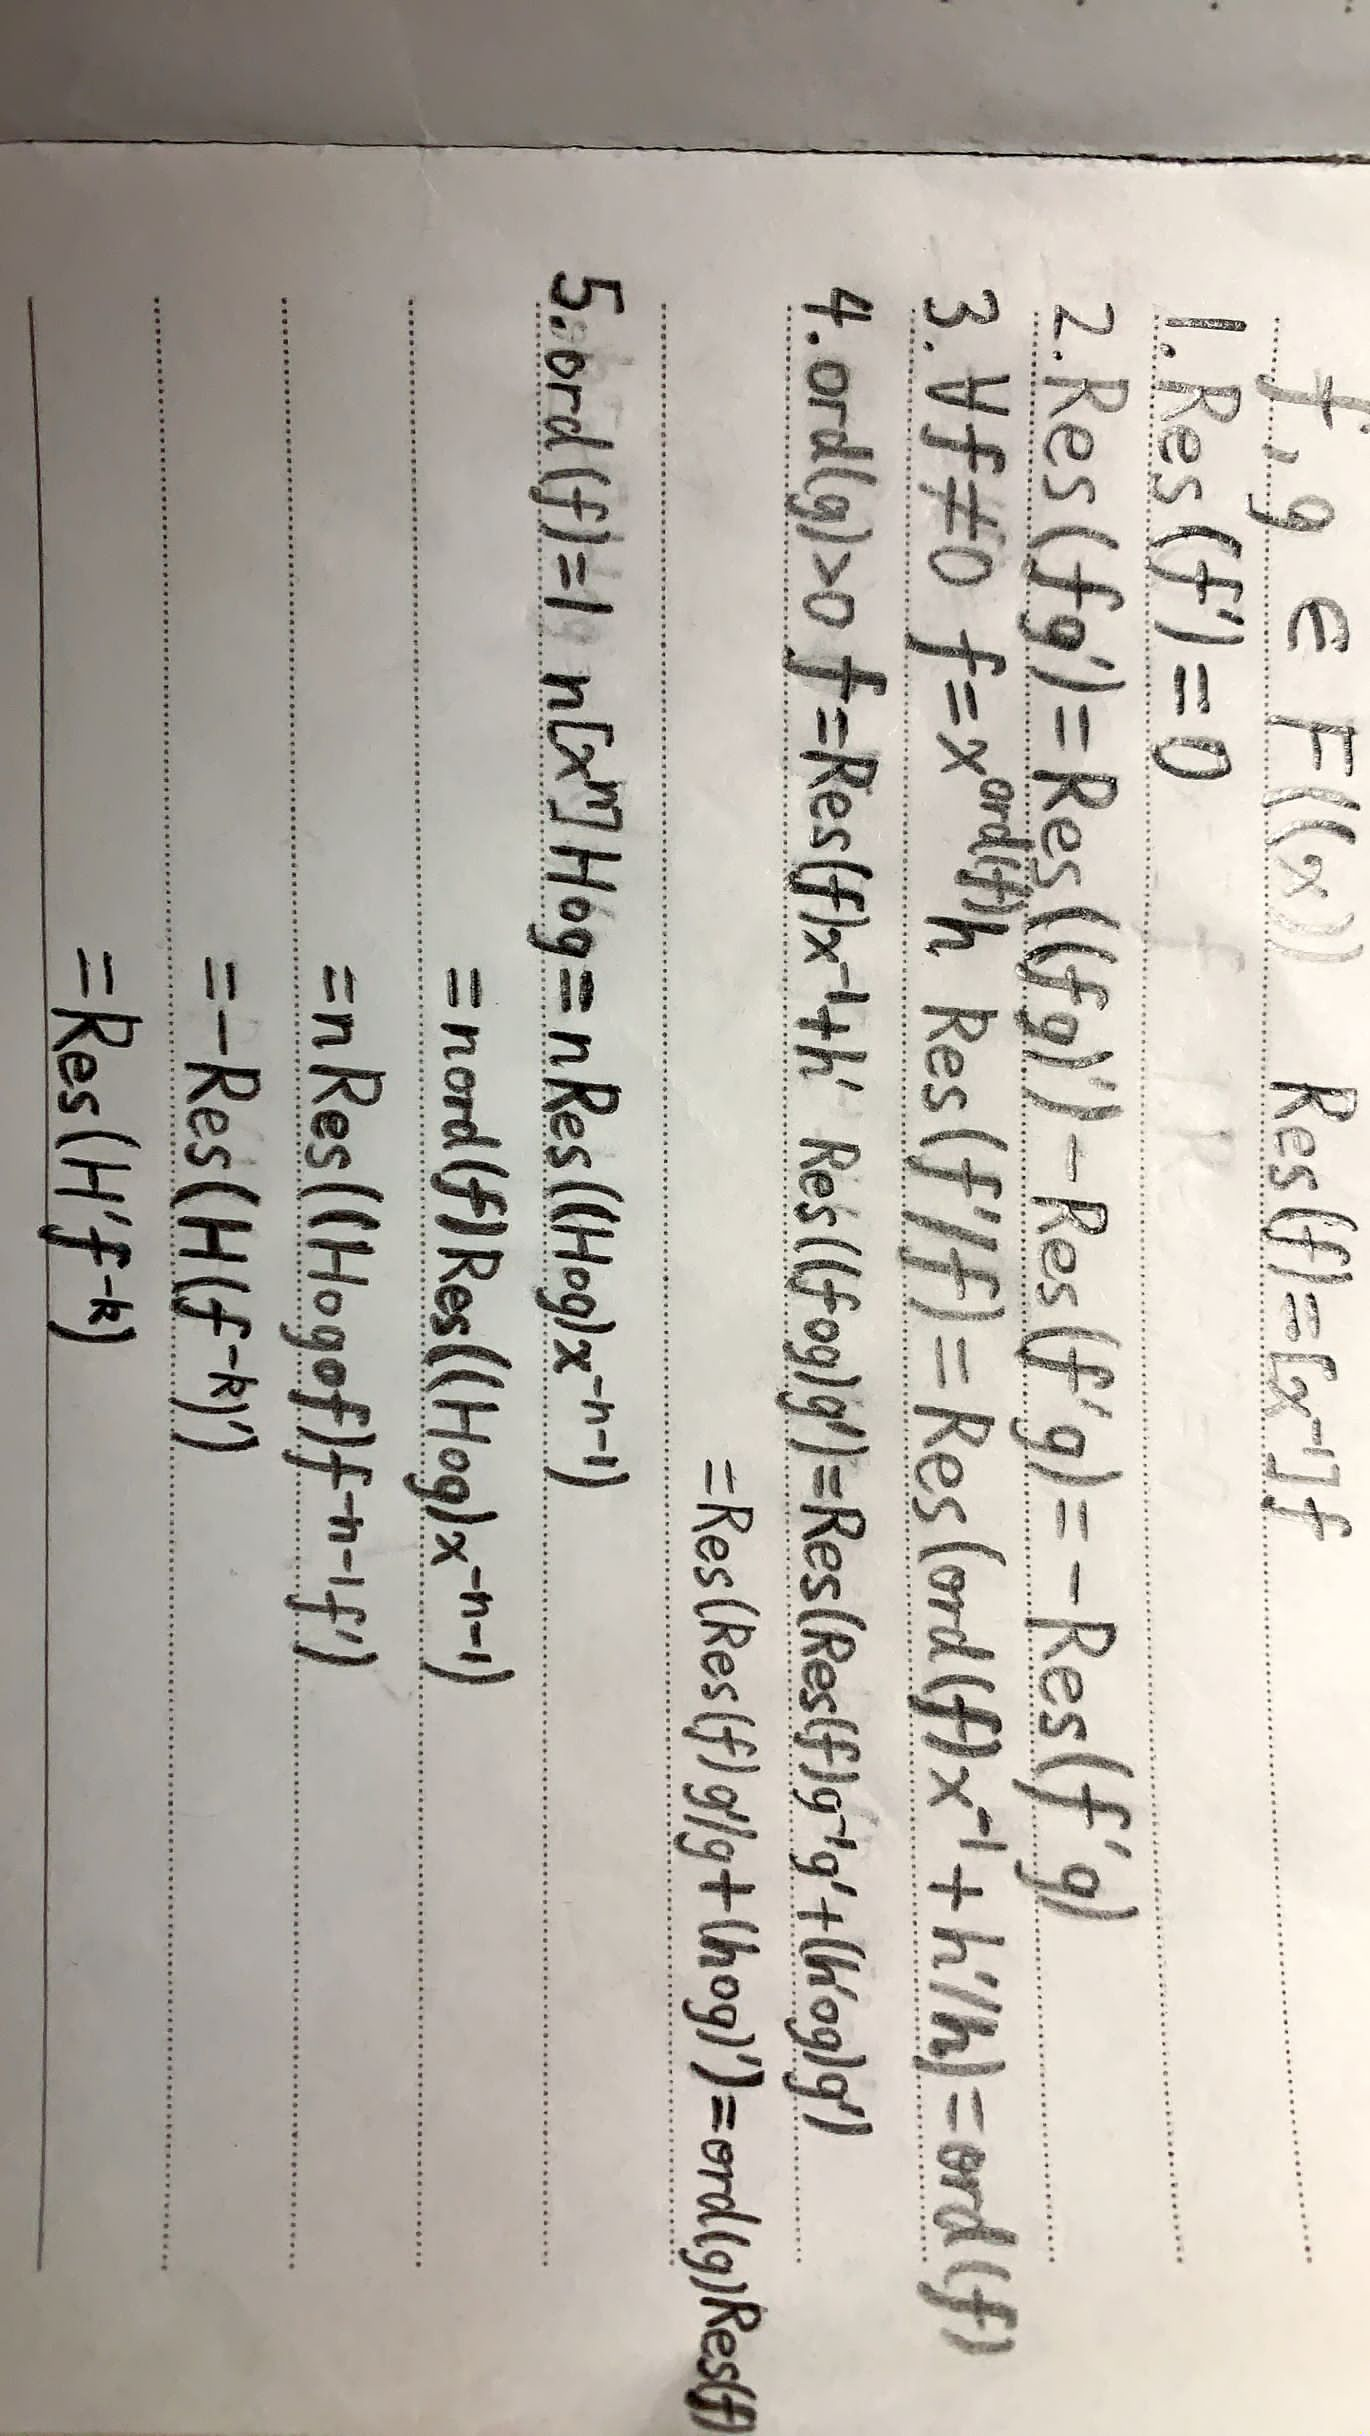 f, g ∈ F((x)) Res(f)=[x⁻¹]f
1. Res(f')=0
2. Res(fg')=Res((fg)')-Res(f'g)=-Res(f'g)
3. ∀f≠0 f=x^ord(f)h Res(f'/f)=Res(ord(f)x⁻¹+h'/h)=ord(f)
4. ord(g)>0 f=Res(f)x⁻¹+h' Res((f∘g)g')=Res(Res(f)g⁻¹g'+(h'∘g)g')
=Res(Res(f)g'/g+(h∘g)')=ord(g)Res(f)
5. ord(f)=1 n[xⁿ]H∘g=nRes((H∘g)x⁻ⁿ⁻¹)
=nord(f)Res((H∘g)x⁻ⁿ⁻¹)
=nRes((H∘g∘f)f⁻ⁿ⁻¹f')
=-Res(H(f⁻ᵏ)')
=Res(H'f⁻ᵏ)